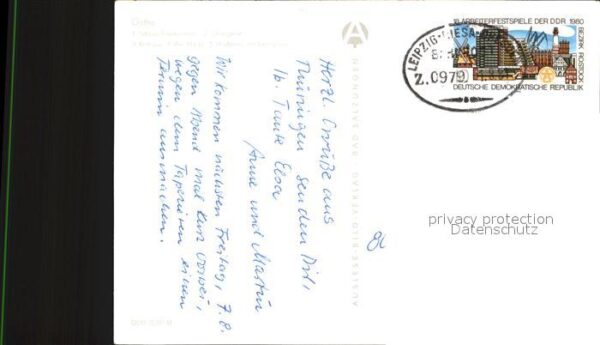 Gotha
Herzl. Grüße aus
Thüringen senden Dir,
lb. Tante Elsa
Anne und Martin
Wir kommen nächsten Freitag, 7.8.
gegen Abend mal kurz vorbei,
wegen dem Tapezieren einen
Termin ausmachen.
XVIII. ARBEITERFESTSPIELE DER DDR 1980
BEZIRK ROSTOCK
DEUTSCHE DEMOKRATISCHE REPUBLIK
LEIPZIG-RIESA
Z.0979
AUSLESE-BILD-VERLAG · BAD SALZUNGEN
privacy protection
Datenschutz